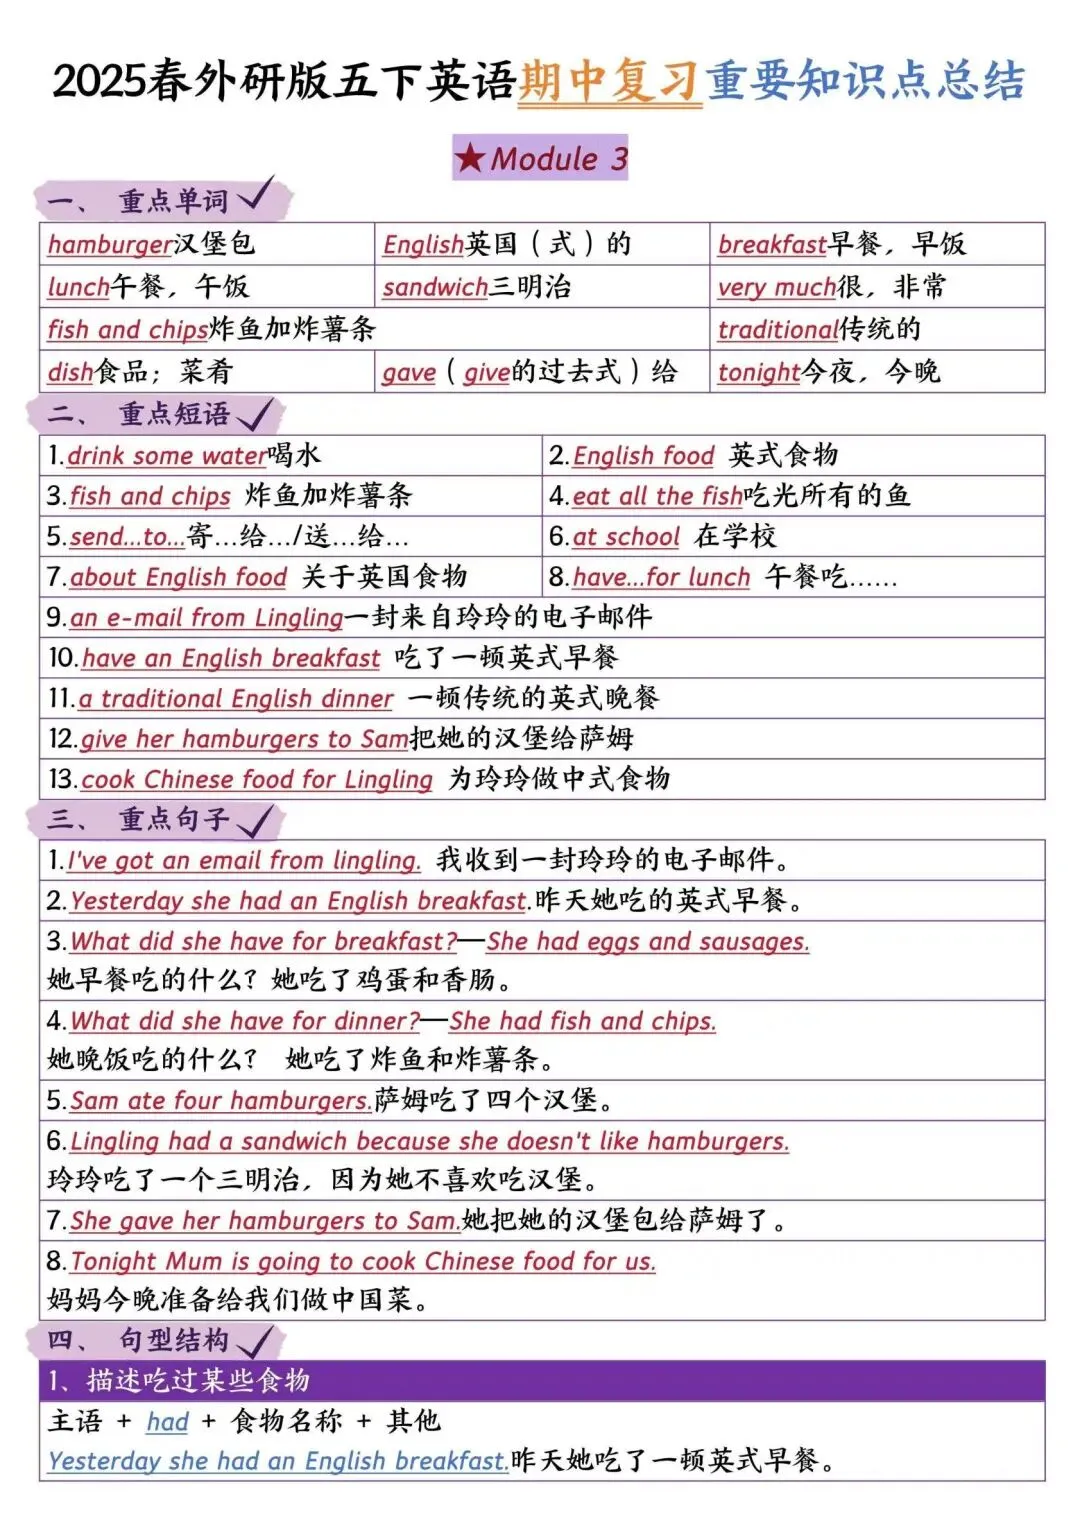 2025春外研版五下英语期中复习重要知识点总结
★Module 3
一、 重点单词
hamburger汉堡包
English英国（式）的
breakfast早餐，早饭
lunch午餐，午饭
sandwich三明治
very much很，非常
fish and chips炸鱼加炸薯条
traditional传统的
dish食品；菜肴
gave（give的过去式）给
tonight今夜，今晚
二、 重点短语
1.drink some water喝水
2.English food 英式食物
3.fish and chips 炸鱼加炸薯条
4.eat all the fish吃光所有的鱼
5.send...to...寄...给.../送...给...
6.at school 在学校
7.about English food 关于英国食物
8.have...for lunch 午餐吃......
9.an e-mail from Lingling一封来自玲玲的电子邮件
10.have an English breakfast 吃了一顿英式早餐
11.a traditional English dinner 一顿传统的英式晚餐
12.give her hamburgers to Sam把她的汉堡给萨姆
13.cook Chinese food for Lingling 为玲玲做中式食物
三、 重点句子
1.I've got an email from lingling. 我收到一封玲玲的电子邮件。
2.Yesterday she had an English breakfast.昨天她吃的英式早餐。
3.What did she have for breakfast?—She had eggs and sausages.
她早餐吃的什么？她吃了鸡蛋和香肠。
4.What did she have for dinner?—She had fish and chips.
她晚饭吃的什么？ 她吃了炸鱼和炸薯条。
5.Sam ate four hamburgers.萨姆吃了四个汉堡。
6.Lingling had a sandwich because she doesn't like hamburgers.
玲玲吃了一个三明治，因为她不喜欢吃汉堡。
7.She gave her hamburgers to Sam.她把她的汉堡包给萨姆了。
8.Tonight Mum is going to cook Chinese food for us.
妈妈今晚准备给我们做中国菜。
四、 句型结构
1、描述吃过某些食物
主语 + had + 食物名称 + 其他
Yesterday she had an English breakfast.昨天她吃了一顿英式早餐。